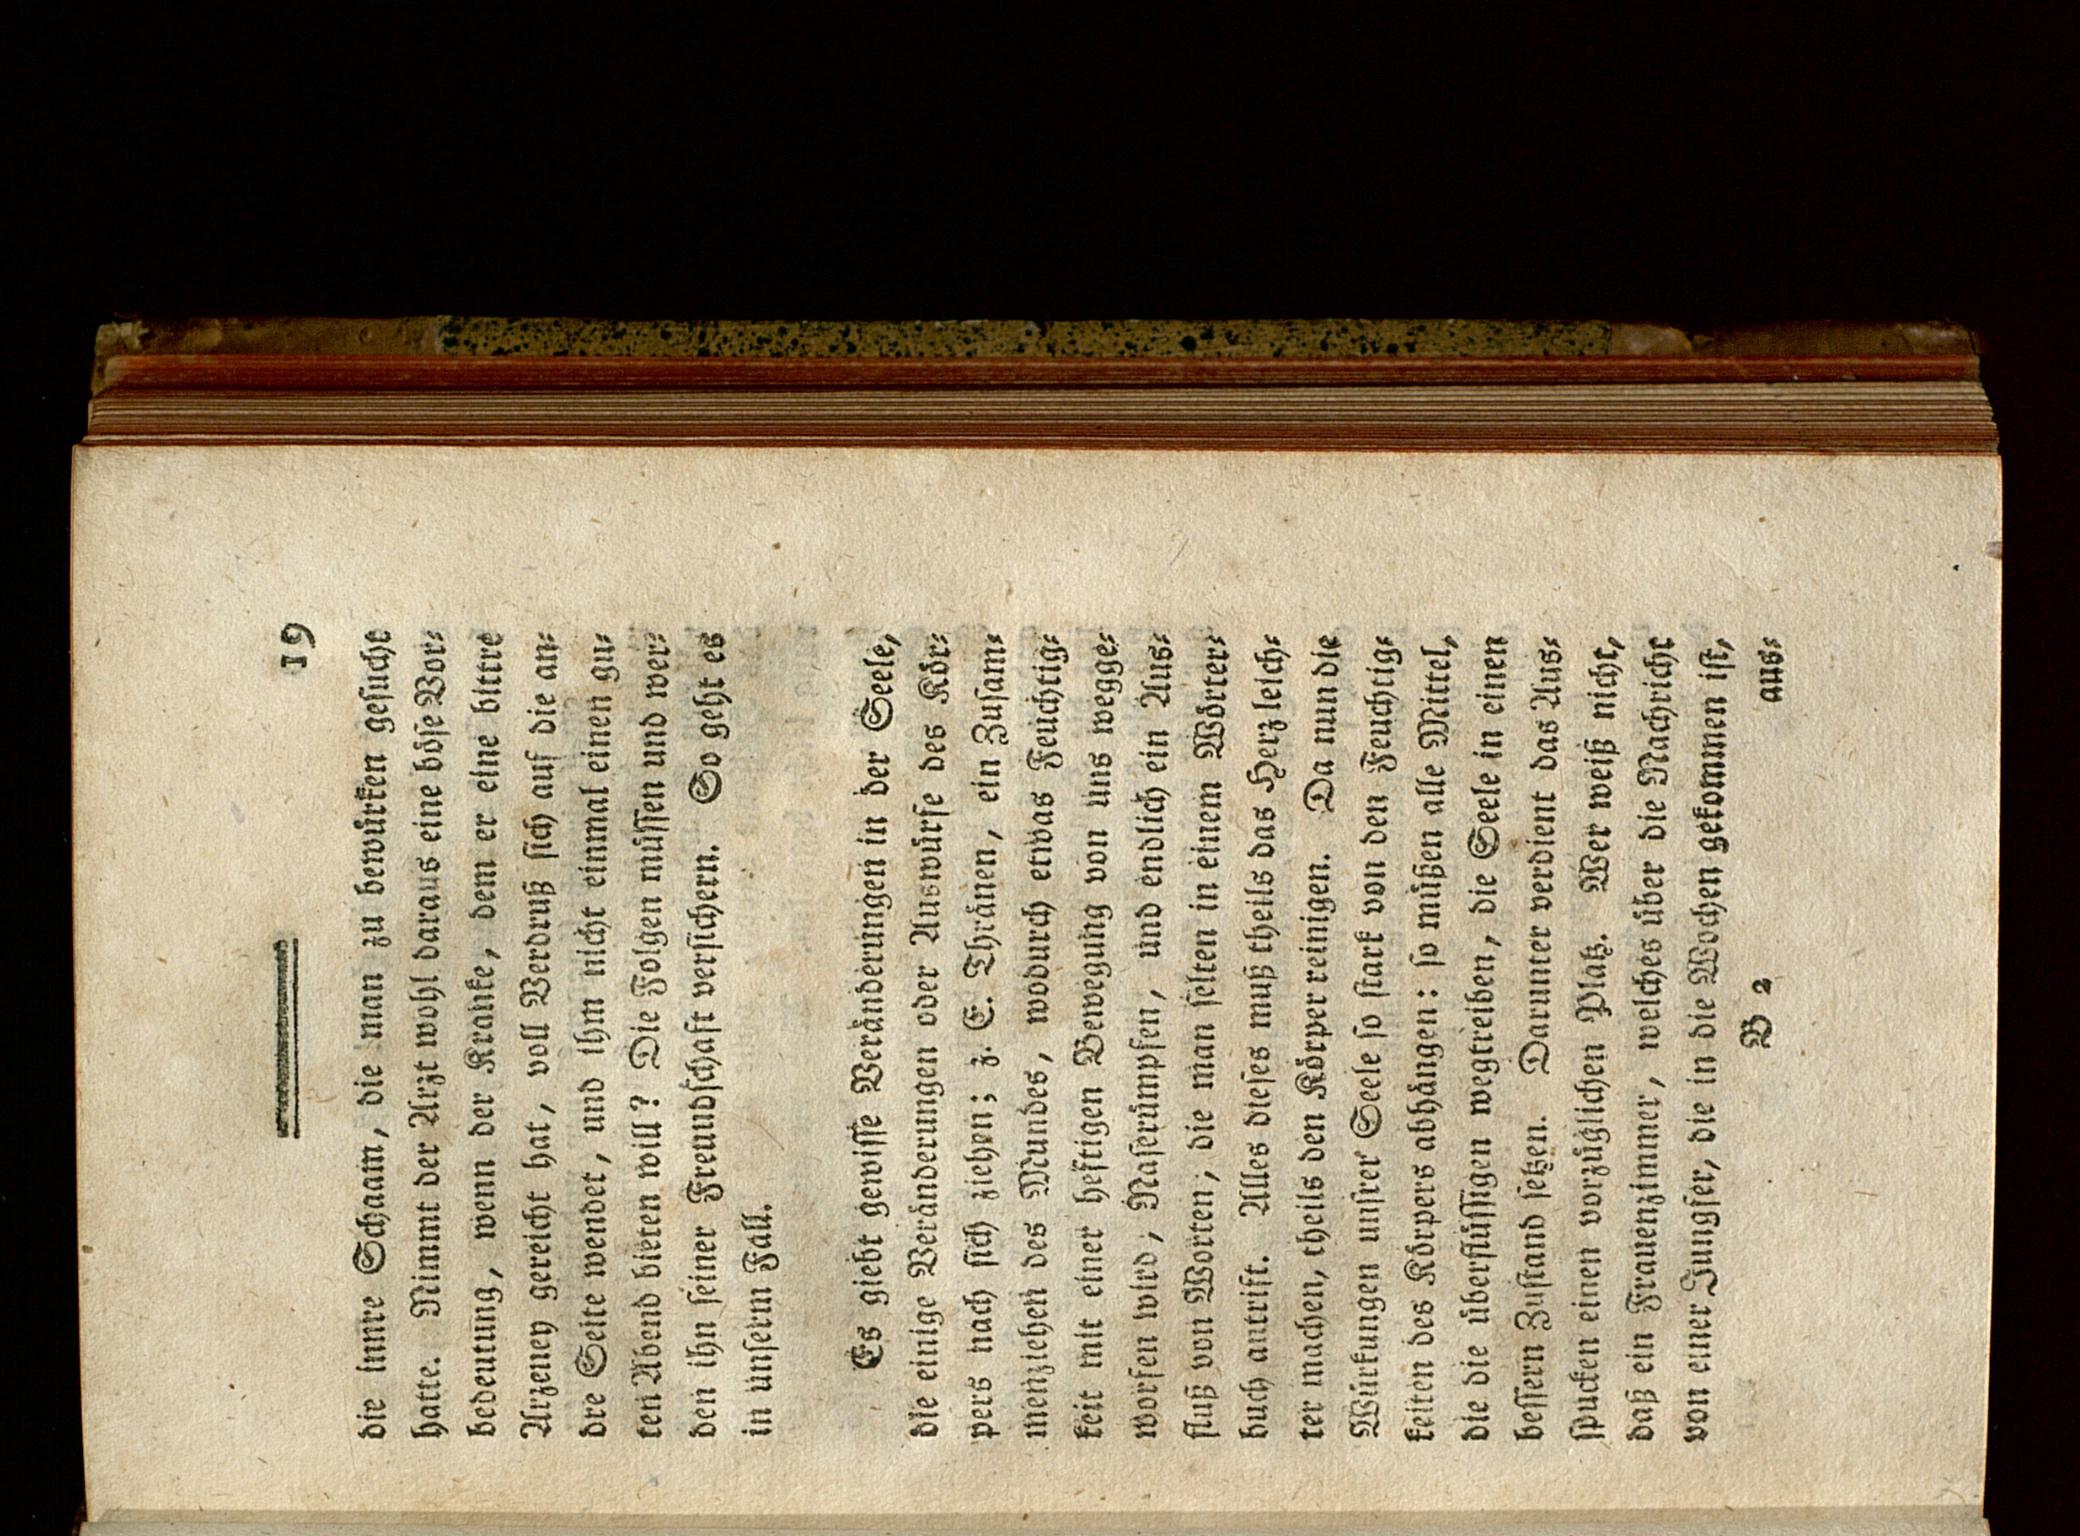 19
die innre Schaam, die man zu bewürken gesuchte
hatte. Nimmt der Arzt wohl daraus eine böse Vor-
bedeutung, wenn der Kranke, dem er eine bittre
Arzeney gereicht hat, voll Verdruß sich auf die an-
dre Seite wendet, und ihm nicht einmal einen gu-
ten Abend bieten will? Die Folgen müssen und wer-
den ihn seiner Freundschaft versichern. So geht es
in unserm Fall.
Es giebt gewisse Veränderungen in der Seele,
die einige Veränderungen oder Auswürfe des Kör-
pers nach sich ziehen; z. E. Thränen, ein Zusam-
menziehen des Mundes, wodurch etwas Feuchtig-
keit mit einer heftigen Bewegung von uns wegge-
worfen wird; Naserümpfen, und endlich ein Aus-
fluß von Worten; die man selten in einem Wörter-
buch antrift. Alles dieses muß theils das Herz leich-
ter machen, theils den Körper reinigen. Da nun die
Würkungen unsrer Seele so stark von den Feuchtig-
keiten des Körpers abhängen: so müßen alle Mittel,
die die überflüssigen wegtreiben, die Seele in einen
bessern Zustand setzen. Darunter verdient das Aus-
spucken einen vorzüglichen Platz. Wer weiß nicht,
daß ein Frauenzimmer, welches über die Nachricht
von einer Jungfer, die in die Wochen gekommen ist,
B 2
aus-